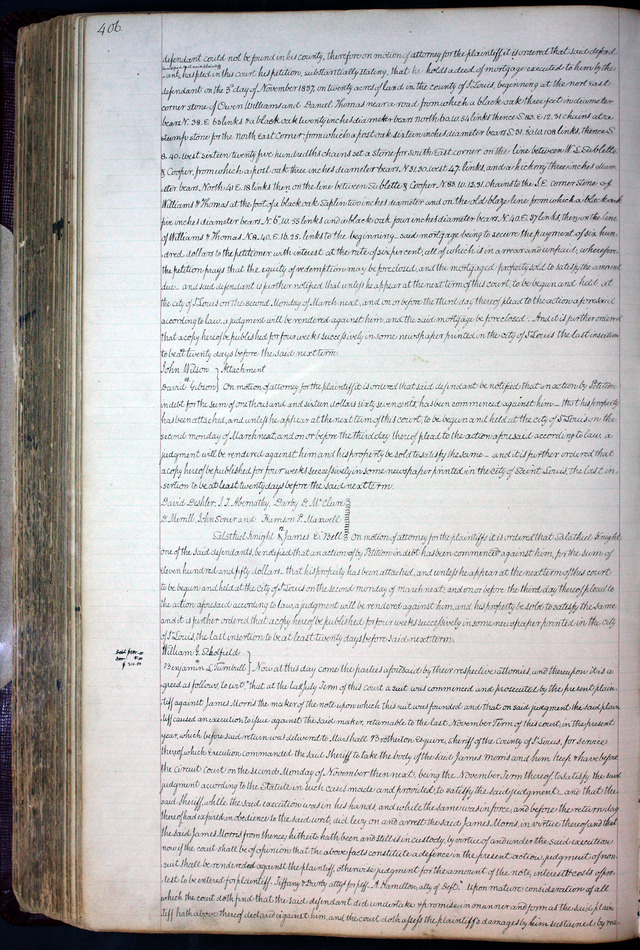 406
defendant could not be found in his county, therefore on motion of attorney for the plaintiff it is ordered that said defend
ant, has filed in this court his petition, substantially stating, that he holds a deed of mortgage executed to him by the
defendant on the 3d day of November 1837, on twenty acres of land in the county of St Louis, beginning at the north east
corner stone of Owen Williams and Daniel Thomas near a road from which a black oak three feet in diameter
bears N. 38. E 63 links & a black oak twenty inches diameter bears north 62 W. 54 links thence S. 83. E 12.31 chains at a
stump stone for the North East Corner: from which a post oak sixteen inches diameter bears S. 31. 30 W. 108 links thence S.
8. 40. west sixteen twenty five hundredths chains set a stone for South East corner on the line between W. L. Sublette
& Cooper, from which a post oak three inches diameter bears N 31, 30. west 47. links, and a hickory three inches diam
eter bears, North 41 E. 18 links then on the line between Sublette & Cooper N. 83. W. 12.31 chains to the S. E. corner stone of
Williams & Thomas at the foot of a black oak Saplin two inches diameter and on the old blaze line from which a black oak
five inches diameter bears N. 6. W. 53 links and a black oak four inches diameter bears, N. 40. E. 37 links then on the line
of Williams & Thomas N. 8. 40. E. 16. 25. links to the beginning. said mortgage being to secure the payment of six hun
dred dollars to the petitioner with interest at the rate of six per cent, all of which is in arrear and unpaid, wherefore
the petition prays that the equity of redemption may be foreclosed, and the mortgaged property sold to satisfy the amount
due. and said defendant is further notified that unless he appear at the next term of this court, to be begun and held at
the city of St Louis on the second Monday of March next, and on or before the third day thereof plead to the action aforesaid
according to law, a judgment will be rendered against him and the said mortgage be foreclosed. And it is further ordered
that a copy hereof be published for four weeks successively in some newspaper printed in the city of St Louis the last insertion
to be at twenty days before the said next term.
John Wilson } Attachment
David Gibson } On motion of attorney for the plaintiff it is ordered that said defendant be notified that an action by Petition
in debt for the sum of one thousand and sixteen dollars sixty seven cents, has been commenced against him — that his property
has been attached, and unless he appear at the next term of this court, to be begun and held at the city of St Louis on the
second monday of March next, and on or before the third day thereof plead to the action aforesaid according to law, a
judgment will be rendered against him and his property be sold to satisfy the same — and it is further ordered that
a copy hereof be published for four weeks successively in some newspaper printed in the city of Saint Louis, the last in
sertion to be at least twenty days before the said next term.
David Deshler, I. T. Abernathy, Darby D. McClure
D Merrill, John and Harrison P. Maxwell
Salathiel Knight & James E. Bell } On motion of attorney for the plaintiffs it is ordered that Salathiel Knight
one of the said defendants, be notified that an action of by Petition in debt has been commenced against him, for the sum of
eleven hundred and fifty dollars — that his property has been attached, and unless he appear at the next term of this court
to be begun and held at the city of St Louis on the second monday of march next, and on or before the third day thereof plead to
the action aforesaid according to law, a judgment will be rendered against him, and his property be sold to satisfy the same
and it is further ordered that a copy hereof be published for four weeks successively in some newspaper printed in the city
of St Louis, the last insertion to be at least twenty days before said next term.
William G. Schofield
Benjamin L. Turnbull } Now at this day come the parties aforesaid by their respective attornies, and thereupon it is a
greed as follows, to wit, "that at the last July Term of this court a suit was commenced and prosecuted by the present plain
tiff against James Morris the maker of the note upon which this suit was founded and that on said judgment the said plain
tiff caused an execution to issue against the said maker, returnable to the last November Term of this court, in the present
year, which before said return was delivered to Marshall Brotherton Esquire, sheriff of the County of St Louis, for service
thereof, which Execution commanded the said Sheriff to take the body of the said James Morris and him keep & have before
the Circuit Court on the second Monday of November then next, being the November Term thereof to satisfy the said
judgment according to the Statute in such cases made and provided, to satisfy the said judgment, and that the
said Sheriff, while the said execution was in his hands, and while the same was in force, and before the return day
thereof had expired in obedience to the said writ, did levy on and arrest the said James Morris, in virtue thereof and that
the said James Morris from thence, hitherto hath been and still is in custody, by virtue of and under the said execution
now if the court shall be of opinion that the above facts constitute a defence in the present action, judgment of non-
suit shall be rendered against the plaintiff, otherwise judgment for the amount of the note, interest & costs of pro-
test to be entered for plaintiff. Tiffany & Darby attys for plff. A Hamilton, atty of Deft." Upon mature consideration of all
which the court doth find that the said defendant did undertake & promise in manner and form as the said plain
tiff hath above thereof declared against him, and the court doth assess the plaintiff's damages by him sustained by rea